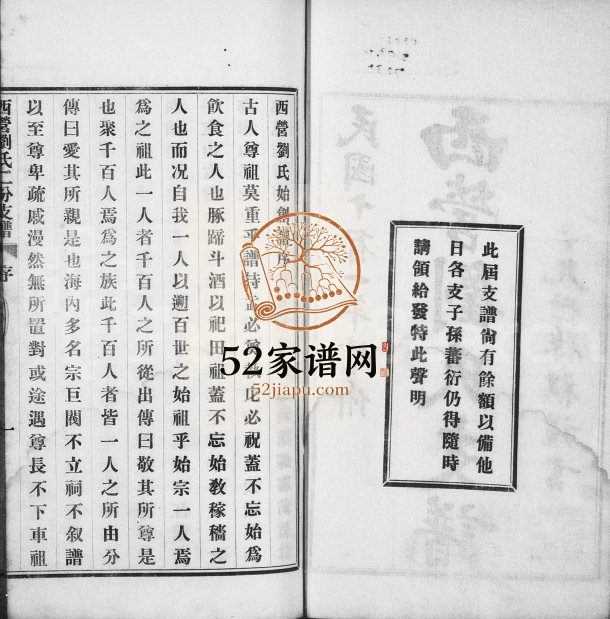 此屆支譜尙有餘額以備他
日各支子孫蕃衍仍得隨時
請領給發特此聲明
西營劉氏始創
古人尊祖莫重乎譜
必祝蓋不忘始爲
飮食之人也豚蹄斗酒以祀田祖蓋不忘始敎稼穡之
人也而况自我一人以遡百世之始祖乎始宗一人焉
爲之祖此一人者千百人之所從出傳曰敬其所尊是
也聚千百人焉爲之族此千百人者皆一人之所由分
傳曰愛其所親是也海內多名宗巨閥不立祠不叙譜
以至尊卑疏戚漫然無所置對或途遇尊長不下車祖
西營劉氏二分支譜
序
一
52家谱网
52jiapu.com